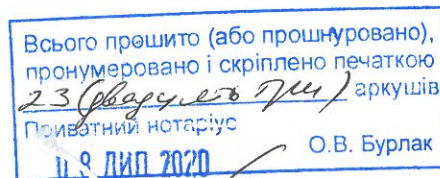 Всього прошито (або прошнуровано),
пронумеровано і скріплено печаткою
23 (двадцять три) аркушів
Приватний нотаріус
О.В. Бурлак
0 8 ЛИП 2020